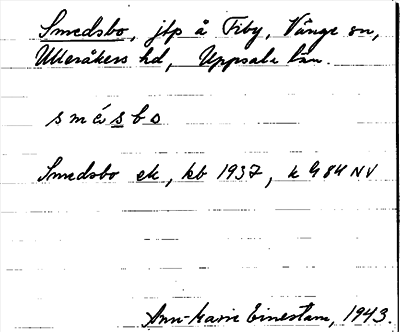 Smedsbo, jtp å Fiby, Vänge sn,
Ulleråkers hd, Uppsala län.
smásbo
Smedsbo ek, kb 1937, k G84 NV
Ann-Marie Einestam, 1943.